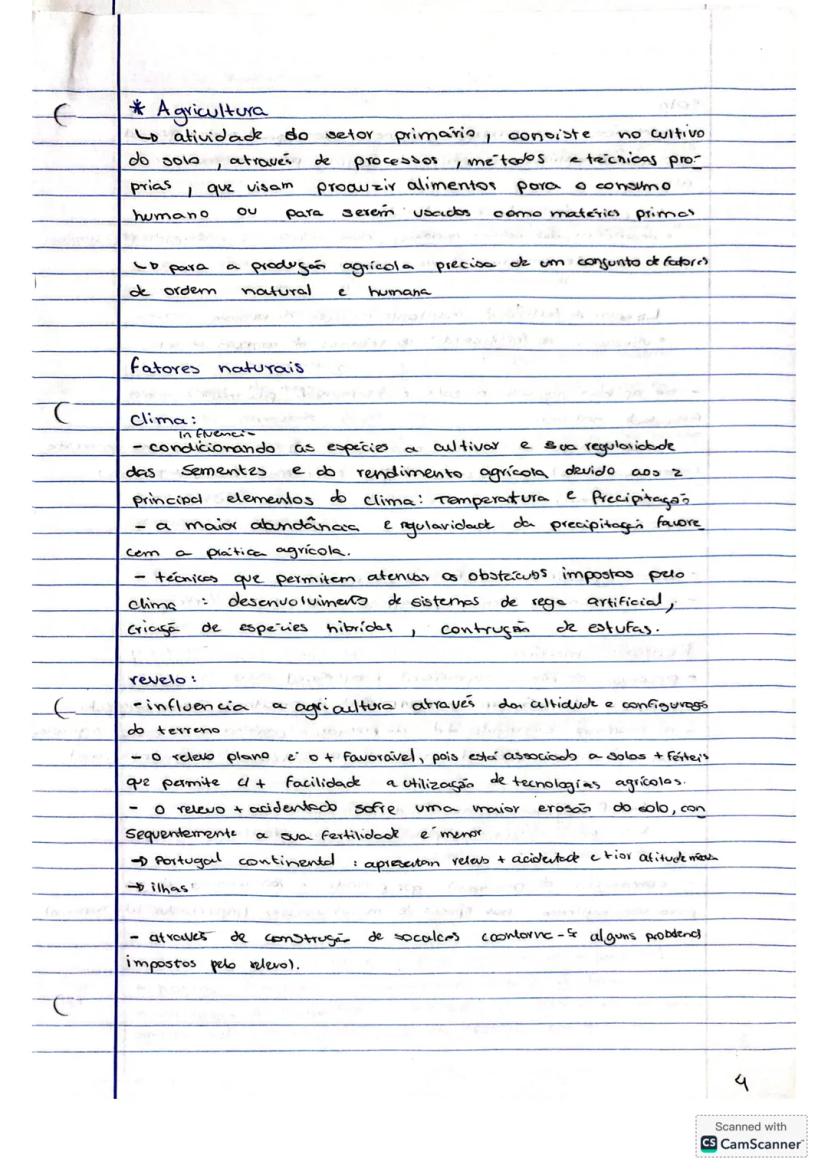 * Agricultura
↳ atividade do setor primário, consiste no cultivo
do solo, através de processos, métodos e técnicas pró-
prias, que visam produzir alimentos para o consumo
humano ou para serem usados como matérias primas
↳ para a produção agrícola precisa de um conjunto de fatores
de ordem natural e humana
fatores naturais
clima:
influenci-
- condicionando as espécies a cultivar e sua regularidade
das sementes e do rendimento agrícola devido aos 2
principal elementos do clima: Temperatura e Precipitação
- a maior abundância e regularidade da precipitação favore
cem a prática agrícola.
- técnicas que permitem atenuar os obstáculos impostos pelo
clima: desenvolvimento de sistemas de rega artificial,
criação de espécies hibridas, contrução de estufas.
revelo:
- influencia a agricultura através da altidude e configuração
do terreno
- o relevo plano é o + favorável, pois está associado a solos + férteis
que permite c/ + facilidade a utilização de tecnologias agrícolas.
- o relevo + acidentado sofre uma maior erosão do solo, con
sequentemente a sua fertilidade é menor
→ Portugal continental: apresentam relevo + acidentado e altitude
→ ilhas:
- através de construção de socalcos (contorna-se alguns problemas
impostos pelo relevo).
4
Scanned with
CS CamScanner